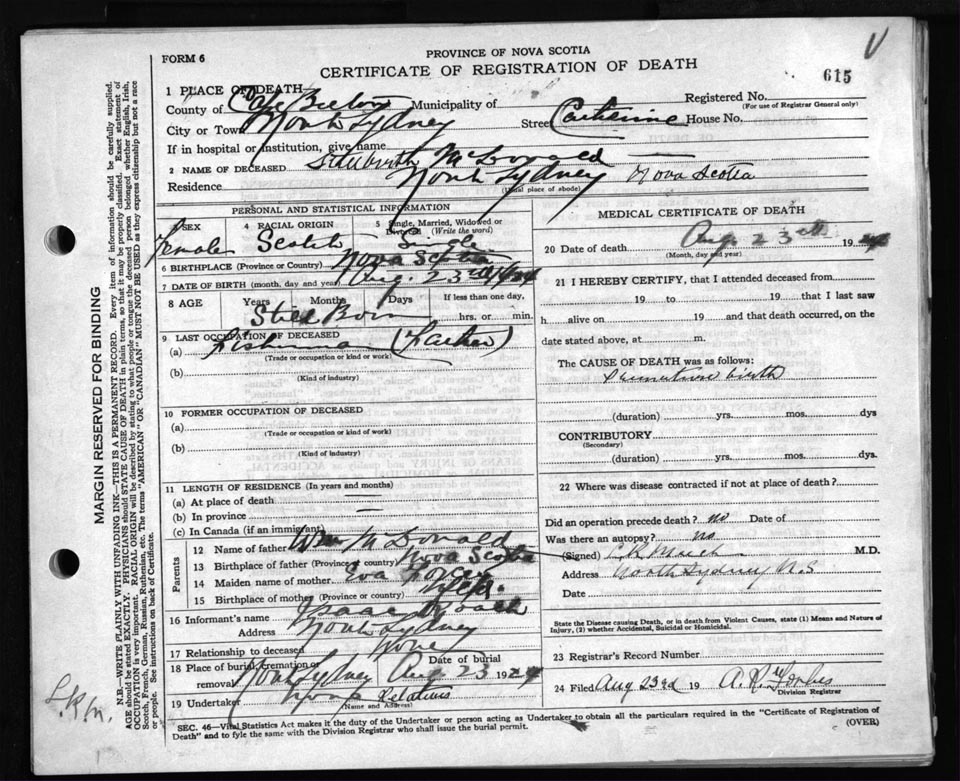 V
FORM 6
PROVINCE OF NOVA SCOTIA
CERTIFICATE OF REGISTRATION OF DEATH
615
1 PLACE OF DEATH
Registered No.
(For use of Registrar General only)
County of Cape Breton Municipality of
City or Town North Sydney Street Catherine House No.
If in hospital or institution, give name
2 NAME OF DECEASED Stillbirth McDonald
Residence North Sydney Nova Scotia
(Usual place of abode)
PERSONAL AND STATISTICAL INFORMATION
SEX Female
4 RACIAL ORIGIN Scotch
5 Single, Married, Widowed or Divorced (Write the word) Single
6 BIRTHPLACE (Province or Country) Nova Scotia
7 DATE OF BIRTH (month, day and year) Aug. 23rd 1924
8 AGE Years Months Days If less than one day,
Still Born hrs. or min.
9 LAST OCCUPATION OF DECEASED
(a) Fisherman (Father)
(Trade or occupation or kind of work)
(b)
(Kind of industry)
10 FORMER OCCUPATION OF DECEASED
(a)
(Trade or occupation or kind of work)
(b)
(Kind of industry)
11 LENGTH OF RESIDENCE (In years and months)
(a) At place of death —
(b) In province —
(c) In Canada (if an immigrant)
Parents
12 Name of father Wm McDonald
13 Birthplace of father (Province or country) Nova Scotia
14 Maiden name of mother Eva
15 Birthplace of mother (Province or country) Nfld.
16 Informant's name Isaac Roach
Address North Sydney
17 Relationship to deceased None
18 Place of burial, cremation or removal North Sydney Date of burial Aug 23 1924
19 Undertaker Relatives
(Name and Address)
MEDICAL CERTIFICATE OF DEATH
20 Date of death Aug. 23rd 1924
(Month, day and year)
21 I HEREBY CERTIFY, that I attended deceased from
19 to 19 that I last saw
h alive on 19 and that death occurred, on the
date stated above, at m.
The CAUSE OF DEATH was as follows:
Premature birth
(duration) yrs. mos. dys
CONTRIBUTORY
(Secondary)
(duration) yrs. mos. dys.
22 Where was disease contracted if not at place of death?
Did an operation precede death? no Date of
Was there an autopsy? no
(Signed) M.D.
Address North Sydney N.S
Date
State the Disease causing Death, or in death from Violent Causes, state (1) Means and Nature of
Injury, (2) whether Accidental, Suicidal or Homicidal.
23 Registrar's Record Number
24 Filed Aug 23rd 19 A. R. Forbes
Division Registrar
SEC. 46—Vital Statistics Act makes it the duty of the Undertaker or person acting as Undertaker to obtain all the particulars required in the "Certificate of Registration of
Death" and to fyle the same with the Division Registrar who shall issue the burial permit.
(OVER)
MARGIN RESERVED FOR BINDING
N.B.—WRITE PLAINLY WITH UNFADING INK—THIS IS A PERMANENT RECORD. Every item of information should be carefully supplied.
AGE should be stated EXACTLY. PHYSICIANS should STATE CAUSE OF DEATH in plain terms, so that it may be properly classified. Exact statement of
OCCUPATION is very important. RACIAL ORIGIN will be described by stating to what people or tongue the deceased person belonged whether English, Irish,
Scotch, French, German, Russian, Ruthenian, etc. The terms "AMERICAN" OR "CANADIAN" MUST NOT BE USED as they express citizenship but not a race
or people. See instructions on back of Certificate.